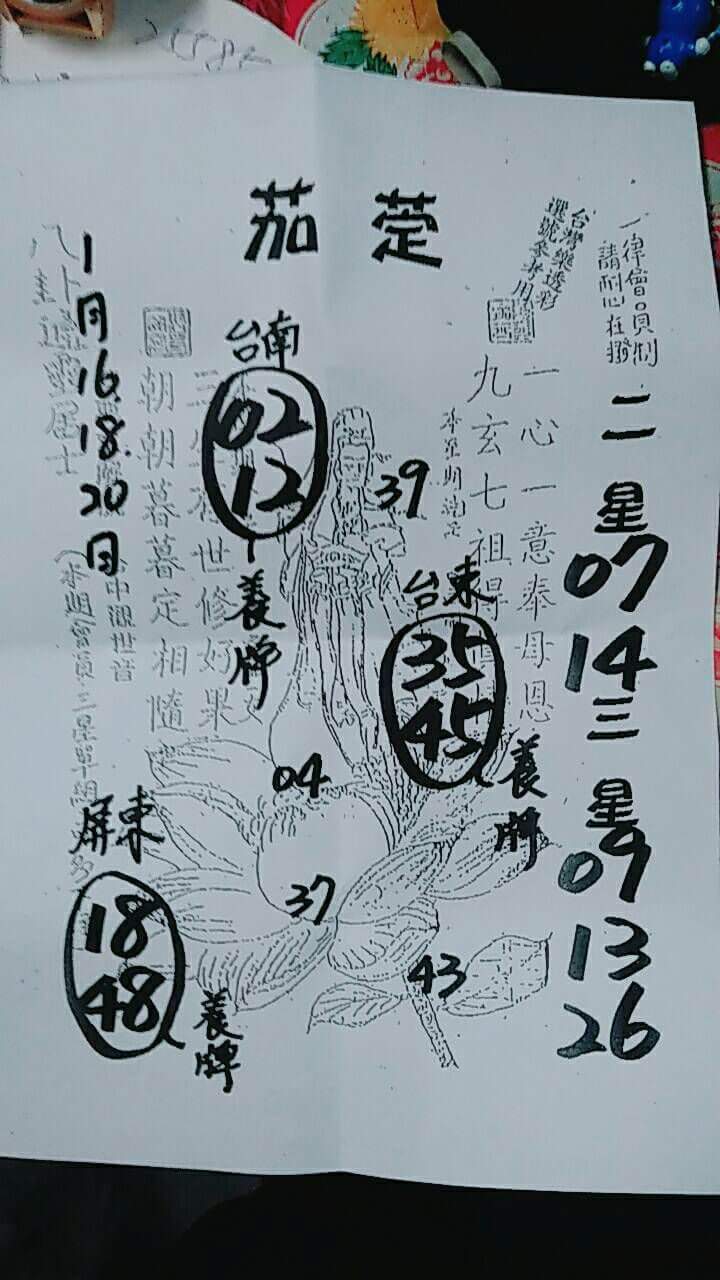 茄萣
一律會員制
請耐心在撥
台灣樂透彩
選號參考用
二星
07
14
三星
09
13
26
一心一意奉母恩
九玄七祖得
台南
02
12
養牌
39
台東
35
45
養牌
04
37
43
屏東
18
48
養牌
世修好果
朝朝暮暮定相隨
中觀世音
1月16.18.20日
居士
(本期會員三星單組